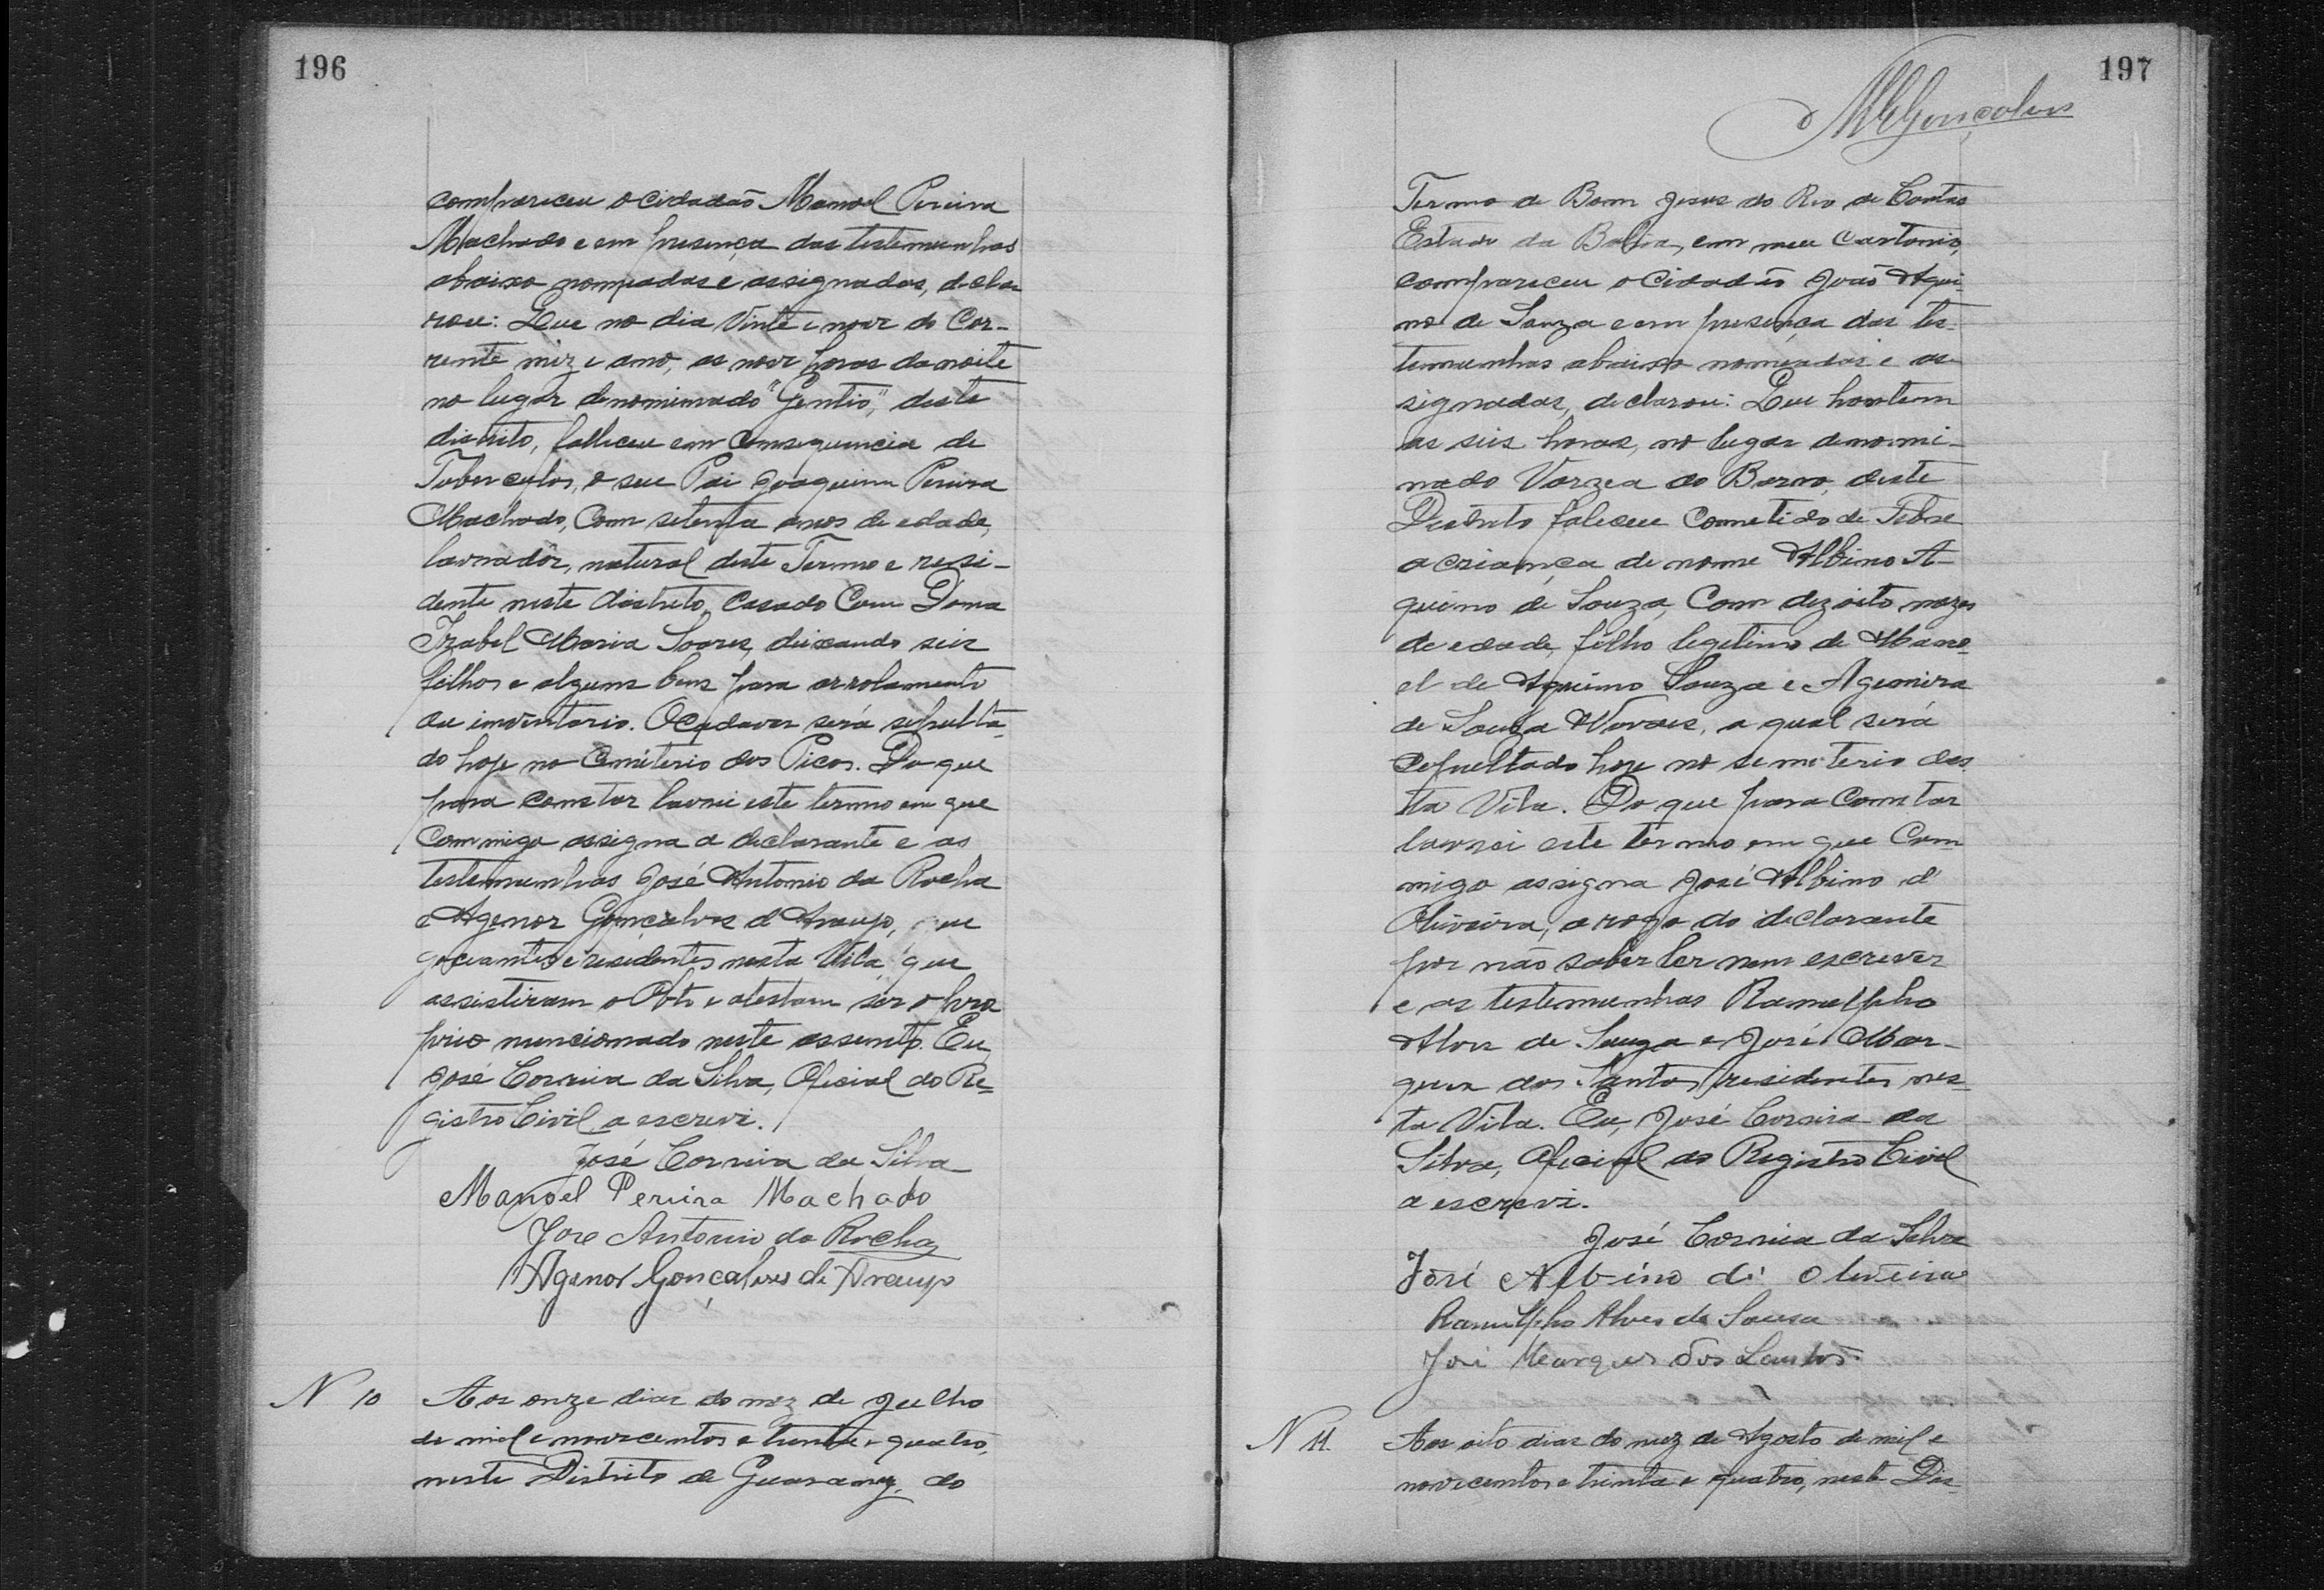 196
compareceu o cidadão Manoel Pereira
Machado e em presença das testemunhas
abaixo nomeadas e assignadas, decla
rou: Que no dia Vinte e nove do Cor-
rente mez e anno, as nove horas da noite
no lugar denominado "Gentio", deste
distrito, falleceu em consequencia de
Tuberculos, o seu Pai Joaquim Pereira
Machado, Com setenta anos de edade,
lavrador, natural deste Termo e resi-
dente neste distrito, casado Com Dona
Izabel Maria Soares, deixando seis
filhos e alguns bens para arrolamento
ou inventario. O cadaver será sepulta
do hoje no Cemiterio dos Picos. Do que
para constar lavrei este termo em que
Commigo assigna o declarante e as
testemunhas José Antonio da Rocha
e Agenor Gonçalves d'Araujo,
e residentes nesta Vila, que
assistiram o e atestam ser o pro
prio mencionado neste assento. Eu
José Correia da Silva, Oficial do Re-
gistro Civil a escrevi.
José Correia da Silva
Manoel Pereira Machado
Jose Antonio da Rocha
Agenor Gonçalves de Araujo
N 10 Aos onze dias do mez de Julho
de mil e novecentos e trinta e quatro,
neste Distrito de Guarany, do
197
Gonçalves
Termo de Bom Jesus do Rio de Contas
Estado da Bahia, em meu Cartorio,
compareceu o Cidadão João Aqui-
no de Souza e em presença das tes-
temunhas abaixo nomeadas e as-
signadas, declarou: Que hontem
as seis horas, no lugar denomi-
nado Varzea do Barro, deste
Distrito faleceu Cometido de Febre
a criança de nome Albino A-
quino de Souza, Com dezoito mezes
de edade, filho legitimo de Mano-
el de Aquino Souza e Agemira
de Souza Novaes, a qual será
Sepultado hoje no semiterio des
ta Vila. Do que para Constar
lavrei este termo em que Com
migo assigna José Albino d'
Oliveira, a rogo do declarante
por não saber ler nem escrever
e as testemunhas Ranulpho
Alves de Souza e José Mar-
ques dos Santos, residentes nes-
ta Vila. Eu, José Correia da
Silva, Oficial do Registro Civil
a escrevi.
José Correia da Silva
José Albino de Oliveira
Ranulpho Alves de Sousa
José Marques dos Santos.
N 11. Aos oito dias do mez de Agosto de mil e
novecentos e trinta e quatro, neste Dis-